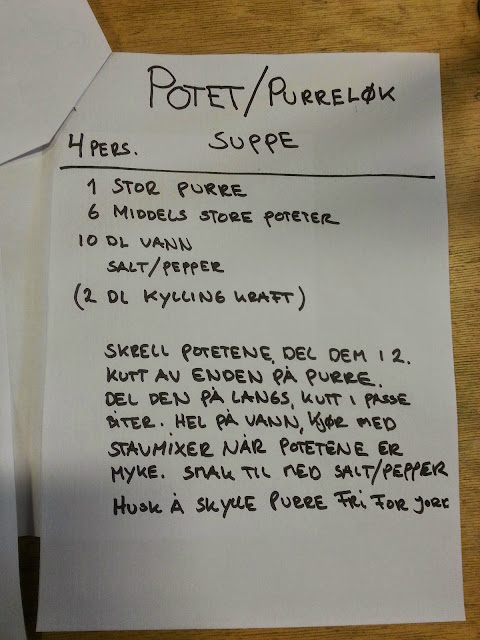 POTET/PURRELØK
4 PERS. SUPPE
1 STOR PURRE
6 MIDDELS STORE POTETER
10 DL VANN
SALT/PEPPER
(2 DL KYLLING KRAFT)
SKRELL POTETENE, DEL DEM I 2.
KUTT AV ENDEN PÅ PURRE.
DEL DEN PÅ LANGS, KUTT I PASSE
BITER. HEL PÅ VANN, KJØR MED
STAVMIXER NÅR POTETENE ER
MYKE. SMAK TIL MED SALT/PEPPER
HUSK Å SKYLLE PURRE FRI FOR JORD